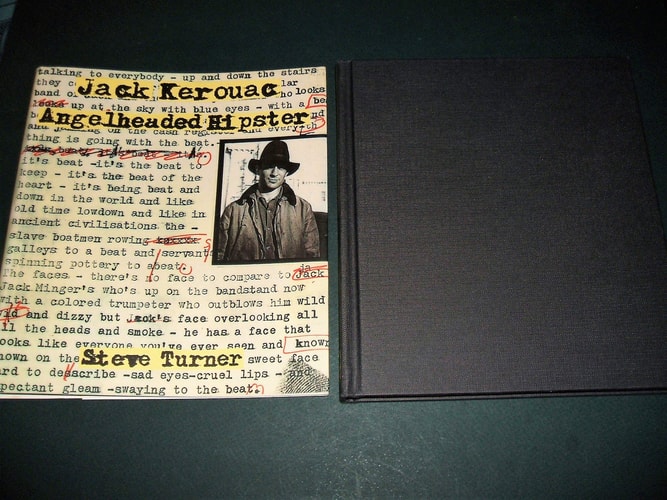 talking to everybody - up and down the stairs
they c lar
Jack Kerouac
band o ho looks
looks up at the sky with blue eyes - with a be
Angelheaded Hipster
nd
and on the cash reg and every th
thing is going with the beat.
it's beat -it's the beat to
keep - it's the beat of the
heart - it's being beat and
down in the world and like
old time lowdown and like in
ancient civilisations the -
slave boatmen rowing
galleys to a beat and servants
spinning pottery to a beat.
The faces - there's no face to compare to Jack
Jack Minger's who's up on the bandstand now
with a colored trumpeter who outblows him wild
and dizzy but face overlooking all
ll the heads and smoke - he has a face that
ooks like everyone you've ever seen and known
nown on the sweet face
Steve Turner
ard to describe -sad eyes-cruel lips - and
pectant gleam -swaying to the beat.